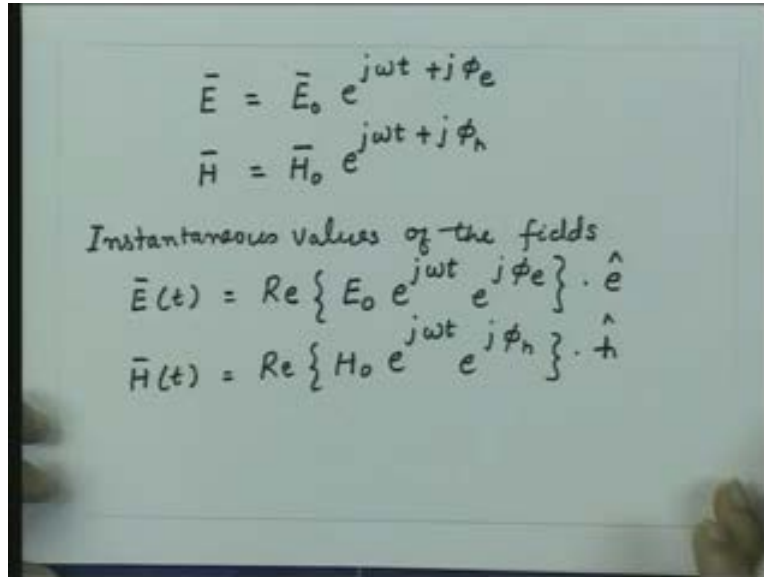 Ē = Ē₀ e^{jωt + jϕₑ}
H̄ = H̄₀ e^{jωt + jϕₕ}
Instantaneous values of the fields
Ē(t) = Re { E₀ e^{jωt} e^{jϕₑ} } . ê
H̄(t) = Re { H₀ e^{jωt} e^{jϕₕ} } . ĥ